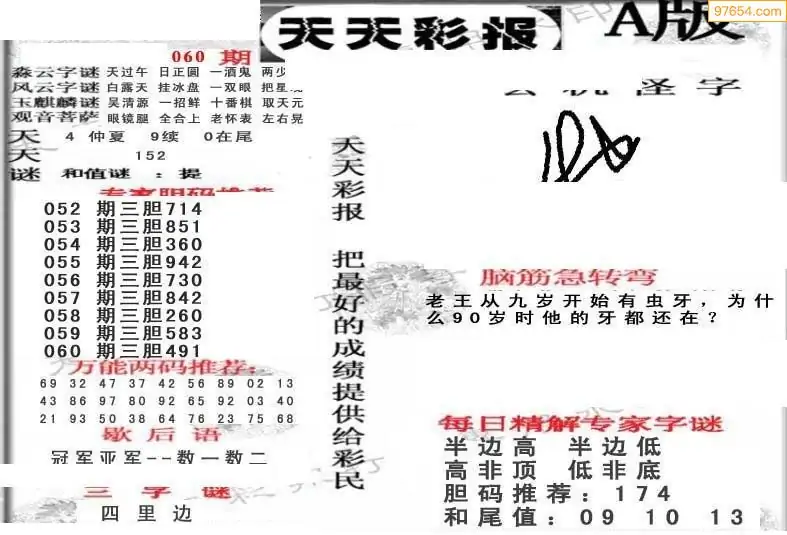 97654.com
天天彩报
A版
060 期
淼云字谜 天过午 日正圆 一酒鬼 两少
风云字谜 白露天 挂冰盘 一双眼 把星
玉麒麟谜 吴清源 一招鲜 十番棋 取天元
观音菩萨 眼镜腿 全合上 老怀表 左右晃
天 4 仲夏 9续 0在尾
天 152
谜 和值谜 : 提
专家胆码推荐
052 期三胆714
053 期三胆851
054 期三胆360
055 期三胆942
056 期三胆730
057 期三胆842
058 期三胆260
059 期三胆583
060 期三胆491
万能两码推荐:
69 32 47 37 42 56 89 02 13
43 86 97 80 92 65 92 03 40
21 93 50 38 64 76 23 75 68
歇后语
冠军亚军--数一数二
三字谜
四里边
天天彩报 把最好的成绩提供给彩民
玄机怪字
脑筋急转弯
老王从九岁开始有虫牙，为什
么90岁时他的牙都还在？
每日精解专家字谜
半边高 半边低
高非顶 低非底
胆码推荐: 174
和尾值: 09 10 13